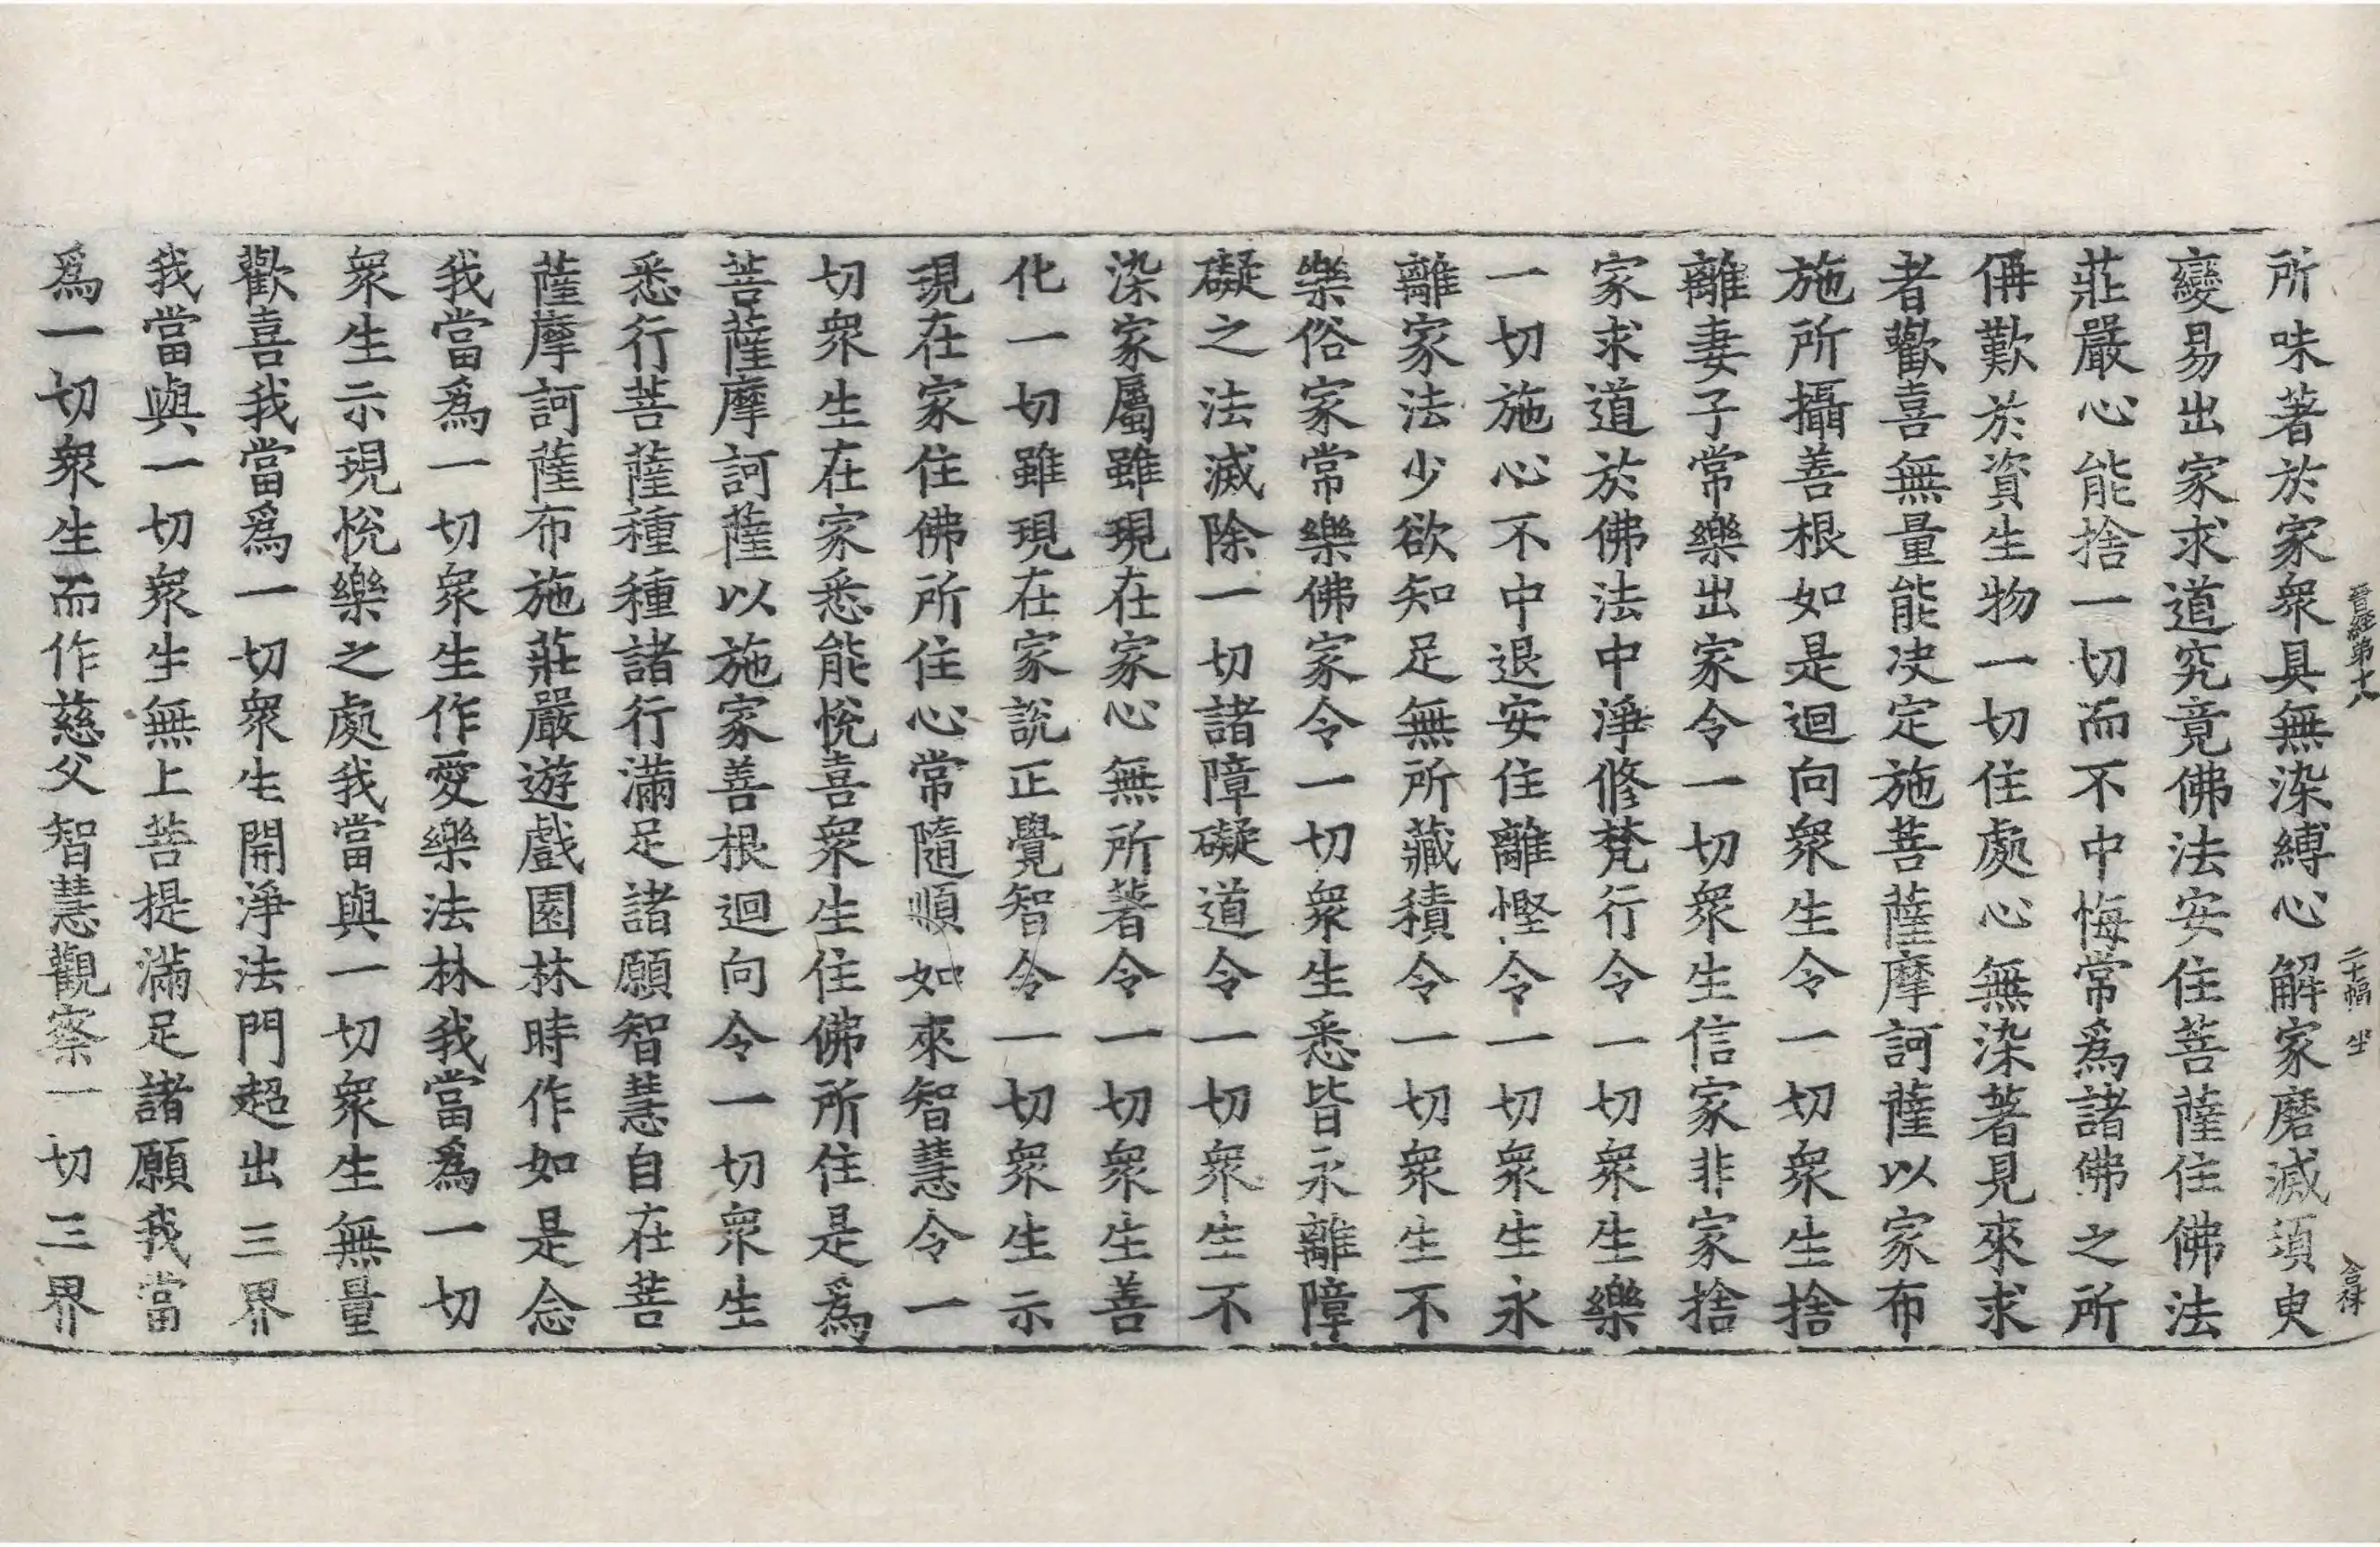 晋經第十八　二十幅　坐　合珠
所味著於家衆具無染縛心解家磨滅須臾
變易出家求道究竟佛法安住菩薩住佛法
莊嚴心能捨一切而不中悔常爲諸佛之所
偁歎於資生物一切住處心無染著見來求
者歡喜無量能决定施菩薩摩訶薩以家布
施所攝善根如是迴向衆生令一切衆生捨
離妻子常樂出家令一切衆生信家非家捨
家求道於佛法中淨修梵行令一切衆生樂
一切施心不中退安住離慳令一切衆生永
離家法少欲知足無所藏積令一切衆生不
樂俗家常樂佛家令一切衆生悉皆永離障
礙之法滅除一切諸障礙道令一切衆生不
染家屬雖現在家心無所著令一切衆生善
化一切雖現在家說正覺智令一切衆生示
現在家住佛所住心常隨順如來智慧令一
切衆生在家悉能悅喜衆生住佛所住是爲
菩薩摩訶薩以施家善根迴向令一切衆生
悉行菩薩種種諸行滿足諸願智慧自在菩
薩摩訶薩布施莊嚴遊戲園林時作如是念
我當爲一切衆生作愛樂法林我當爲一切
衆生示現悅樂之處我當與一切衆生無量
歡喜我當爲一切衆生開淨法門超出三界
我當與一切衆生無上菩提滿足諸願我當
爲一切衆生而作慈父智慧觀察一切三界